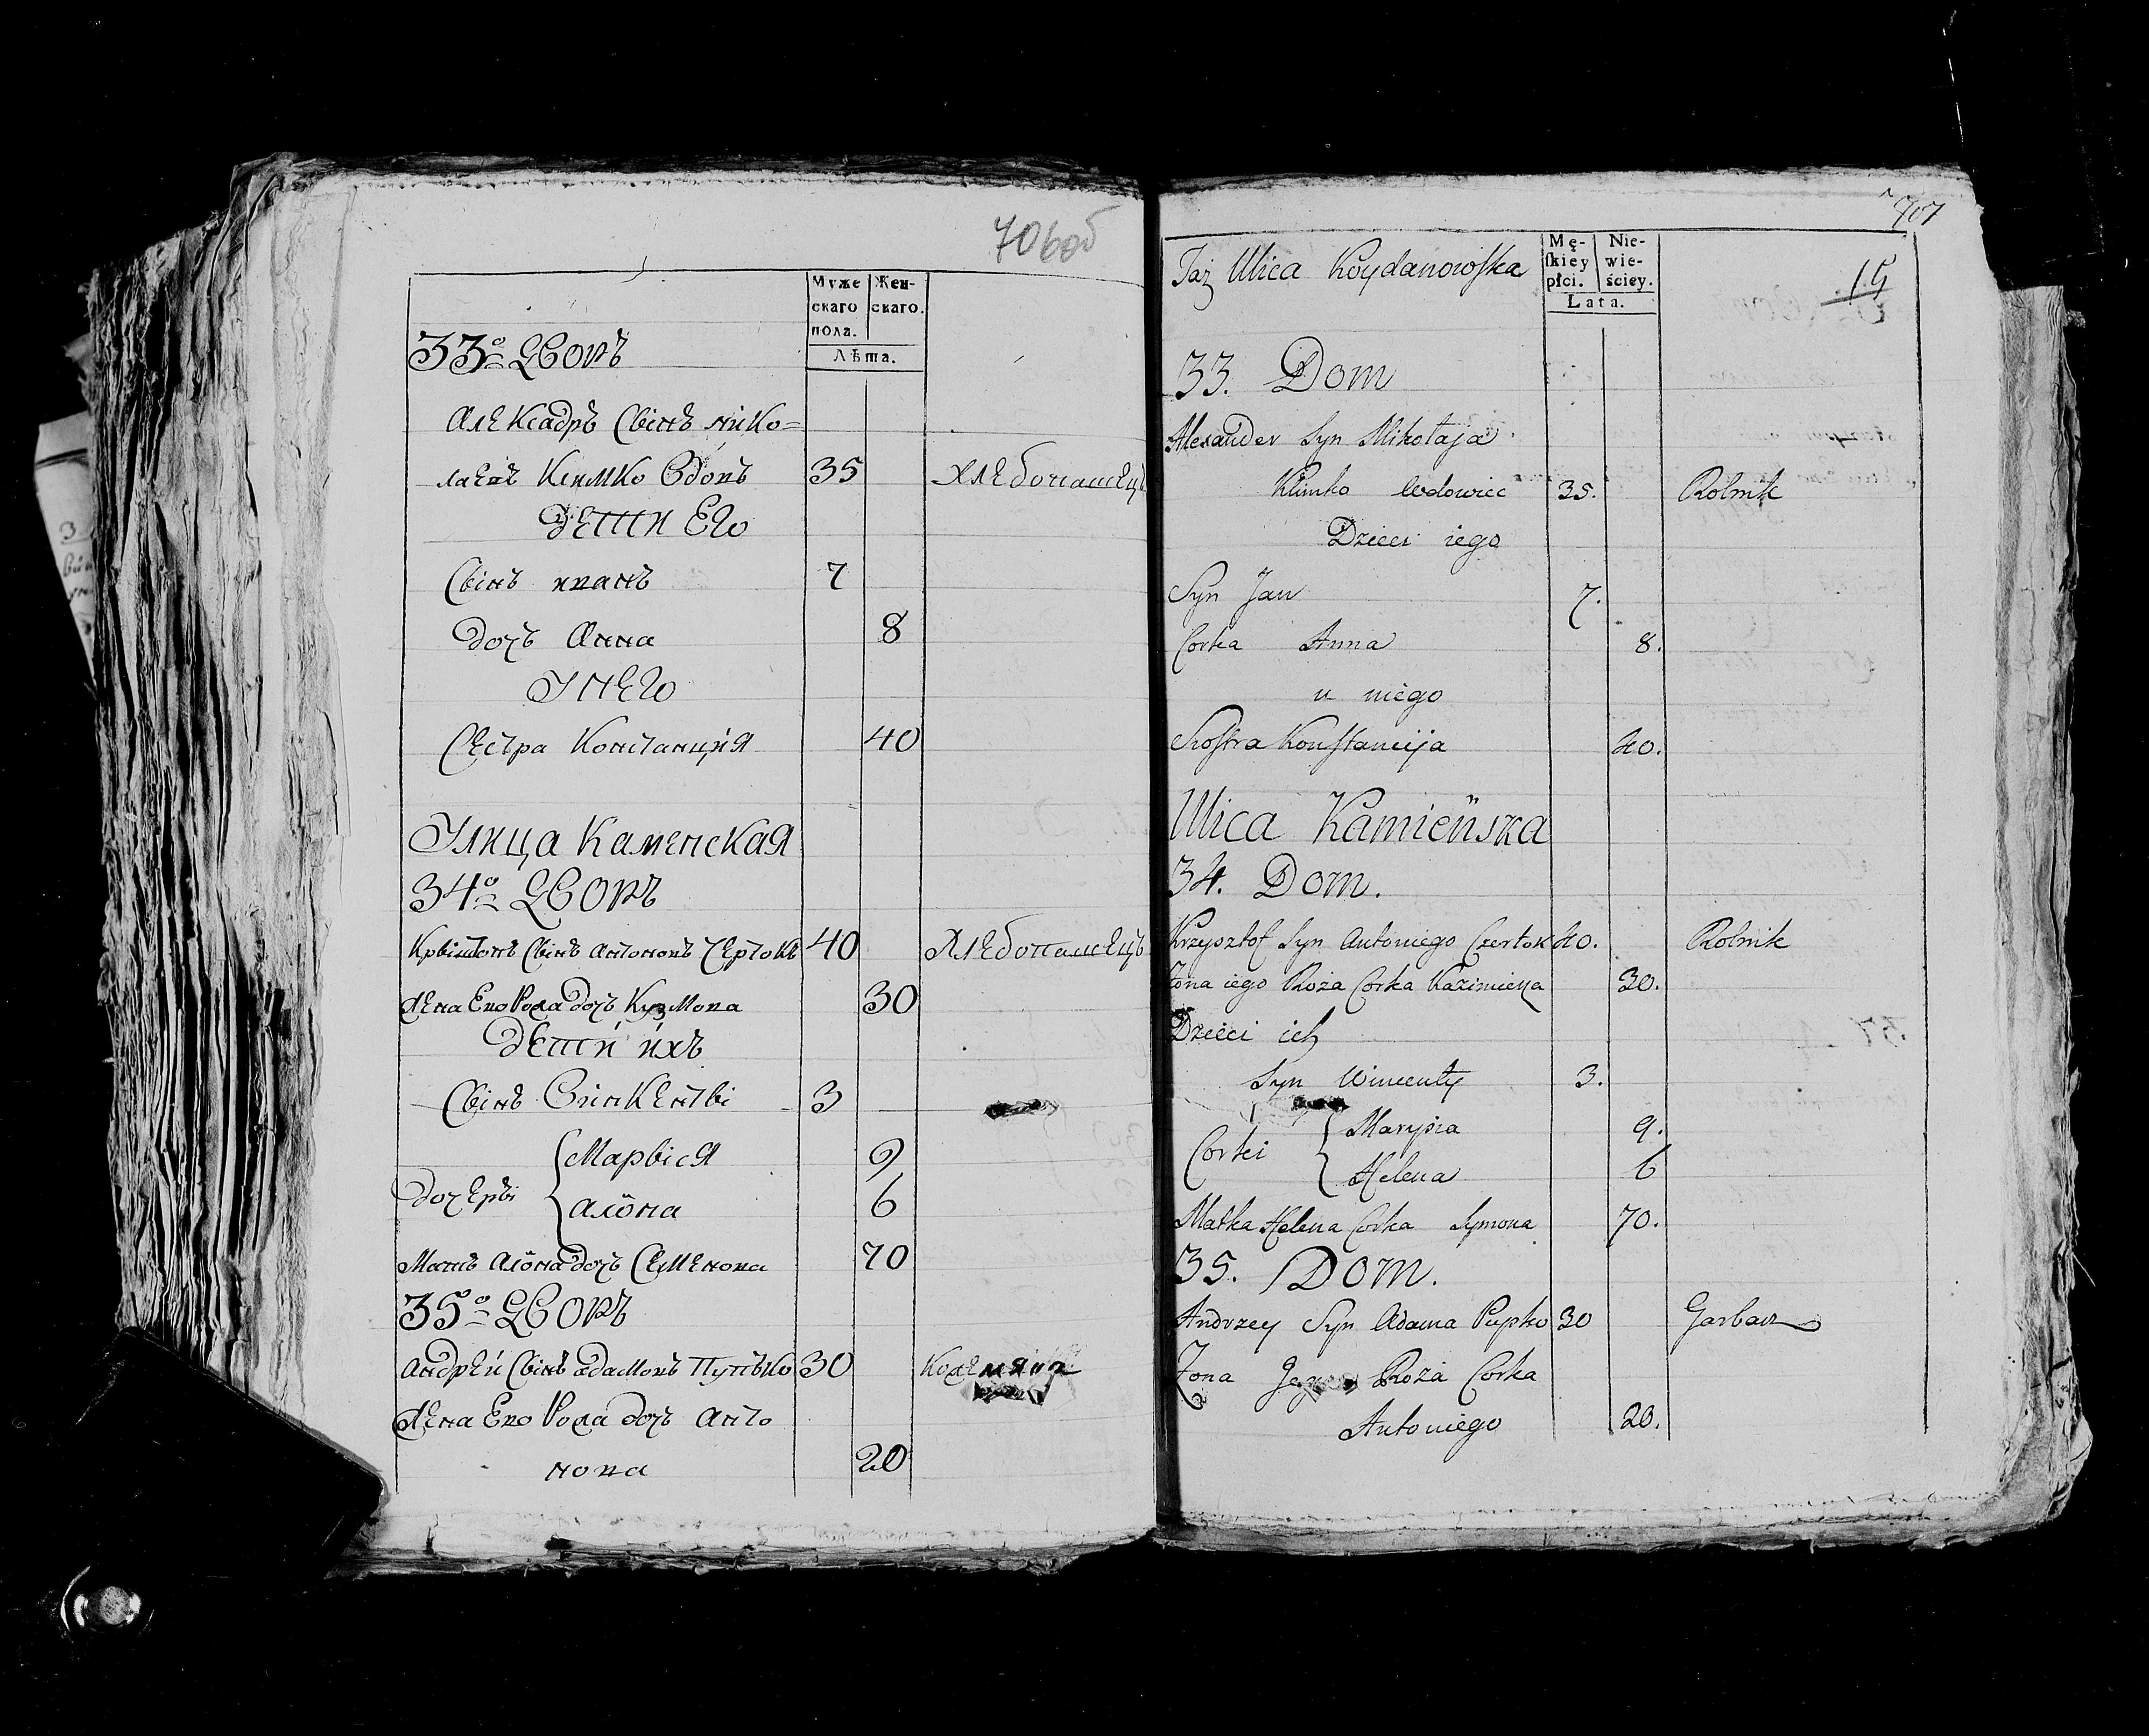 706об
Муже
скаго
пола.
Жен-
скаго.
Лѣта.
33о Дворъ
Алексадръ Свінъ нико=
лаевъ Климко Вдовъ 35 Хлебопашецъ
Дети Его
Свінъ иванъ 7
дочъ Анна 8
У него
Сестра Констанция 40
Улица Каменская
34о Дворъ
Крвіштопъ Свінъ антоновъ Чертокъ 40 Хлебопашецъ
Жена Ево Рожа дочъ Кузмова 30
Дети ихъ
Свінъ Винкентві 3
дочерві { Марвіся 9
Алёна 6
Мать Алёна дочъ Семенова 70
35о Дворъ
Андрей Свінъ адамовъ Пупько 30 Кожемяка
Жена Ево Рожа дочъ Анто
нова 20
707
15
Taż Ulica Koydanowſka
Mę-
ſkiey
płci.
Nie-
wie-
ściey.
Lata.
33. Dom
Alexander Syn Mikołaja
Klimko Wdowiec 35. Rolnik
Dzieci iego
Syn Jan 7.
Corka Anna 8.
u niego
Sioſtra Konſtancija 40.
Ulica Kamieńska
34. Dom.
Krzysztof Syn Antoniego Czertok 40. Rolnik
Żona iego Roża Corka Kazimierza 30.
Dzieci ich
Syn Wincenty 3.
Corki { Marysia 9.
Helena 6
Matka Helena Corka Symona 70.
35. Dom.
Andrzey Syn Adama Pupko 30 Garbarz
Żona Jego Roża Corka
Antoniego 20.